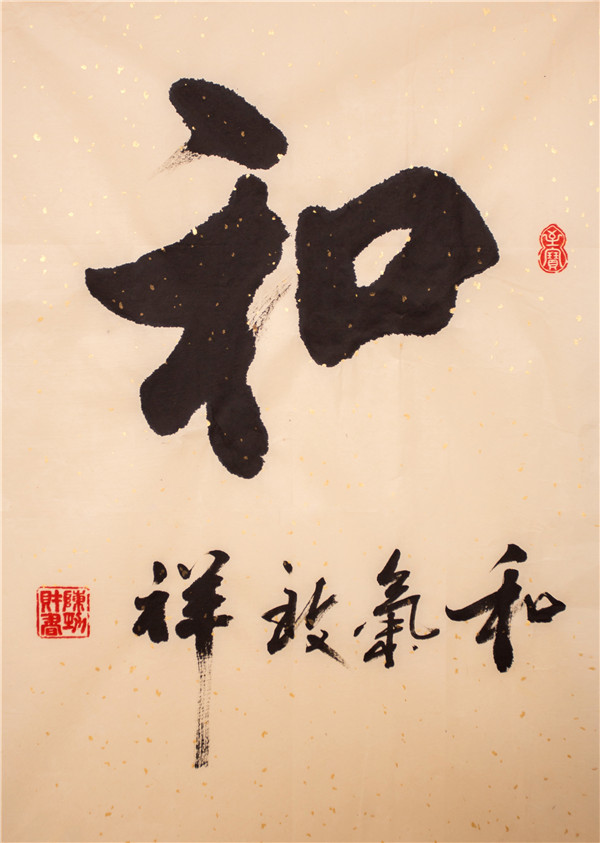 和
至寶
和氣致祥
陳功
財書